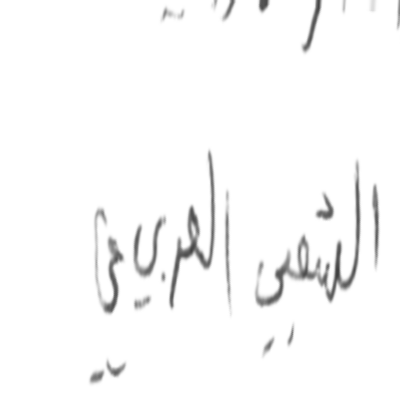 الشعبي العربي في